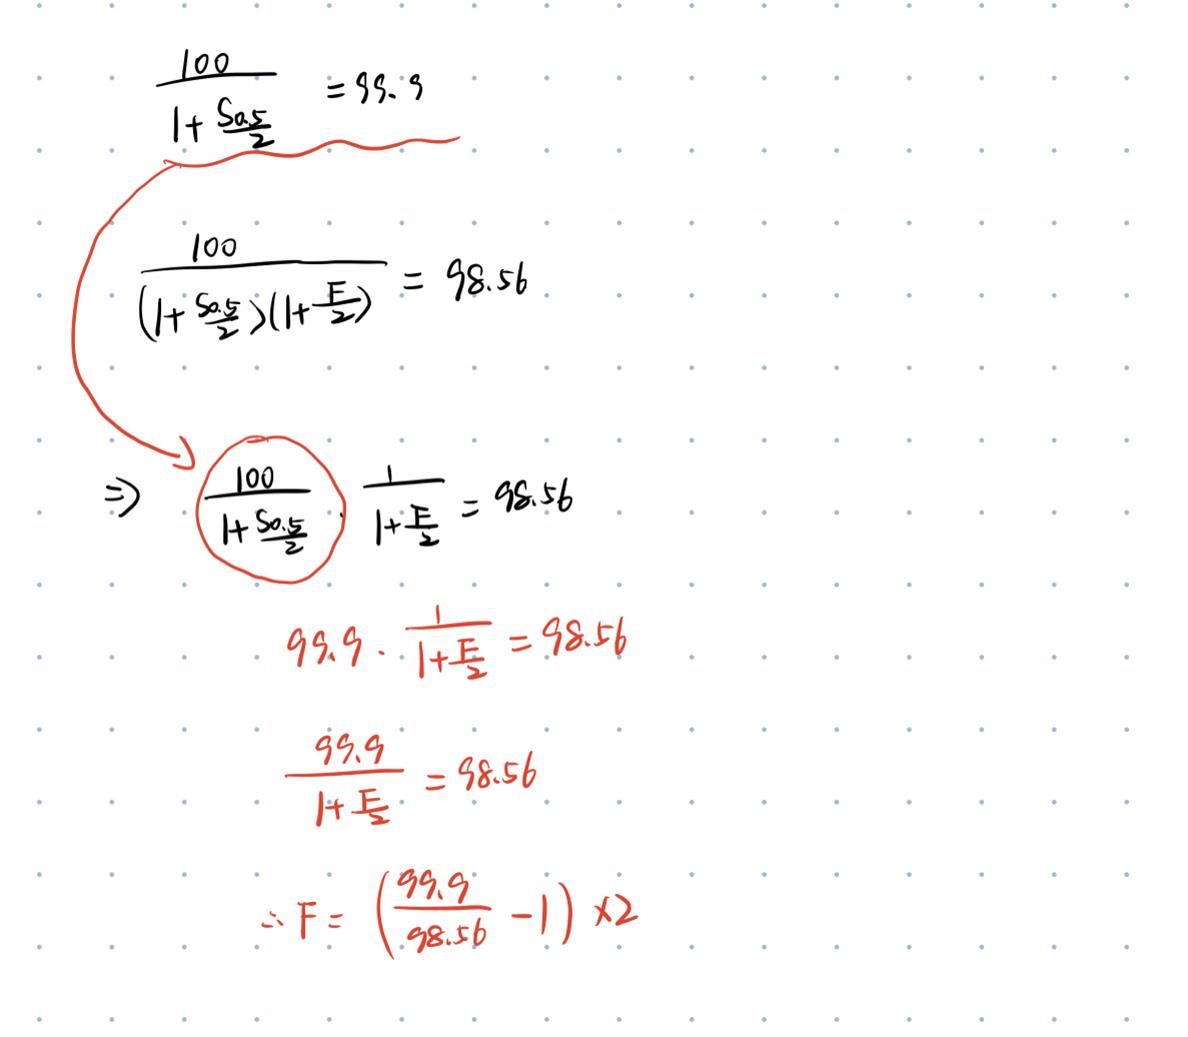 100/(1+S0.5/2) = 99.9
100/((1+S0.5/2)(1+F/2)) = 98.56
⇒ 100/(1+S0.5/2) · 1/(1+F/2) = 98.56
99.9 · 1/(1+F/2) = 98.56
99.9/(1+F/2) = 98.56
∴ F = (99.9/98.56 - 1) × 2